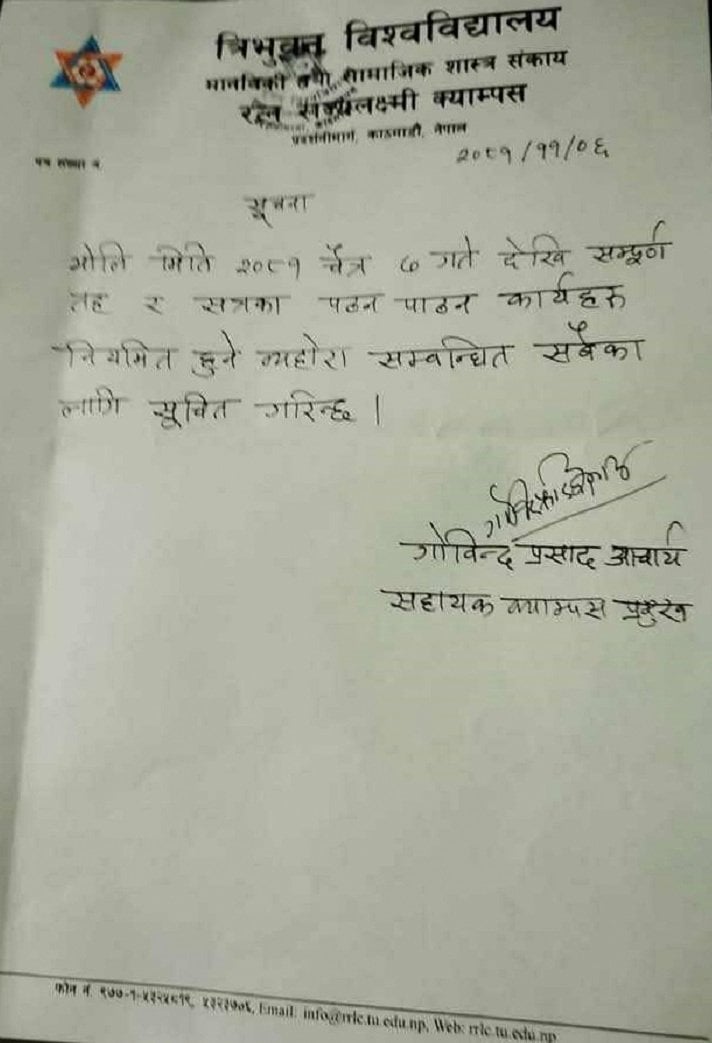 त्रिभुवन विश्वविद्यालय
मानविकी तथा सामाजिक शास्त्र संकाय
रत्न राज्यलक्ष्मी क्याम्पस
प्रदर्शनीमार्ग, काठमाडौं, नेपाल
पत्र संख्या न
२०८१/११/०६
सूचना
भोलि मिति २०८१ चैत्र ७ गते देखि सम्पूर्ण
तह र सत्रका पठन पाठन कार्यहरु
नियमित हुने व्यहोरा सम्बन्धित सबैका
लागि सूचित गरिन्छ ।
गोविन्द प्रसाद आचार्य
सहायक क्याम्पस प्रमुख
फोन नं. ९७७-१-, ५३२२७०६, Email: info@rrlc.tu.edu.np, Web: rrlc.tu.edu.np